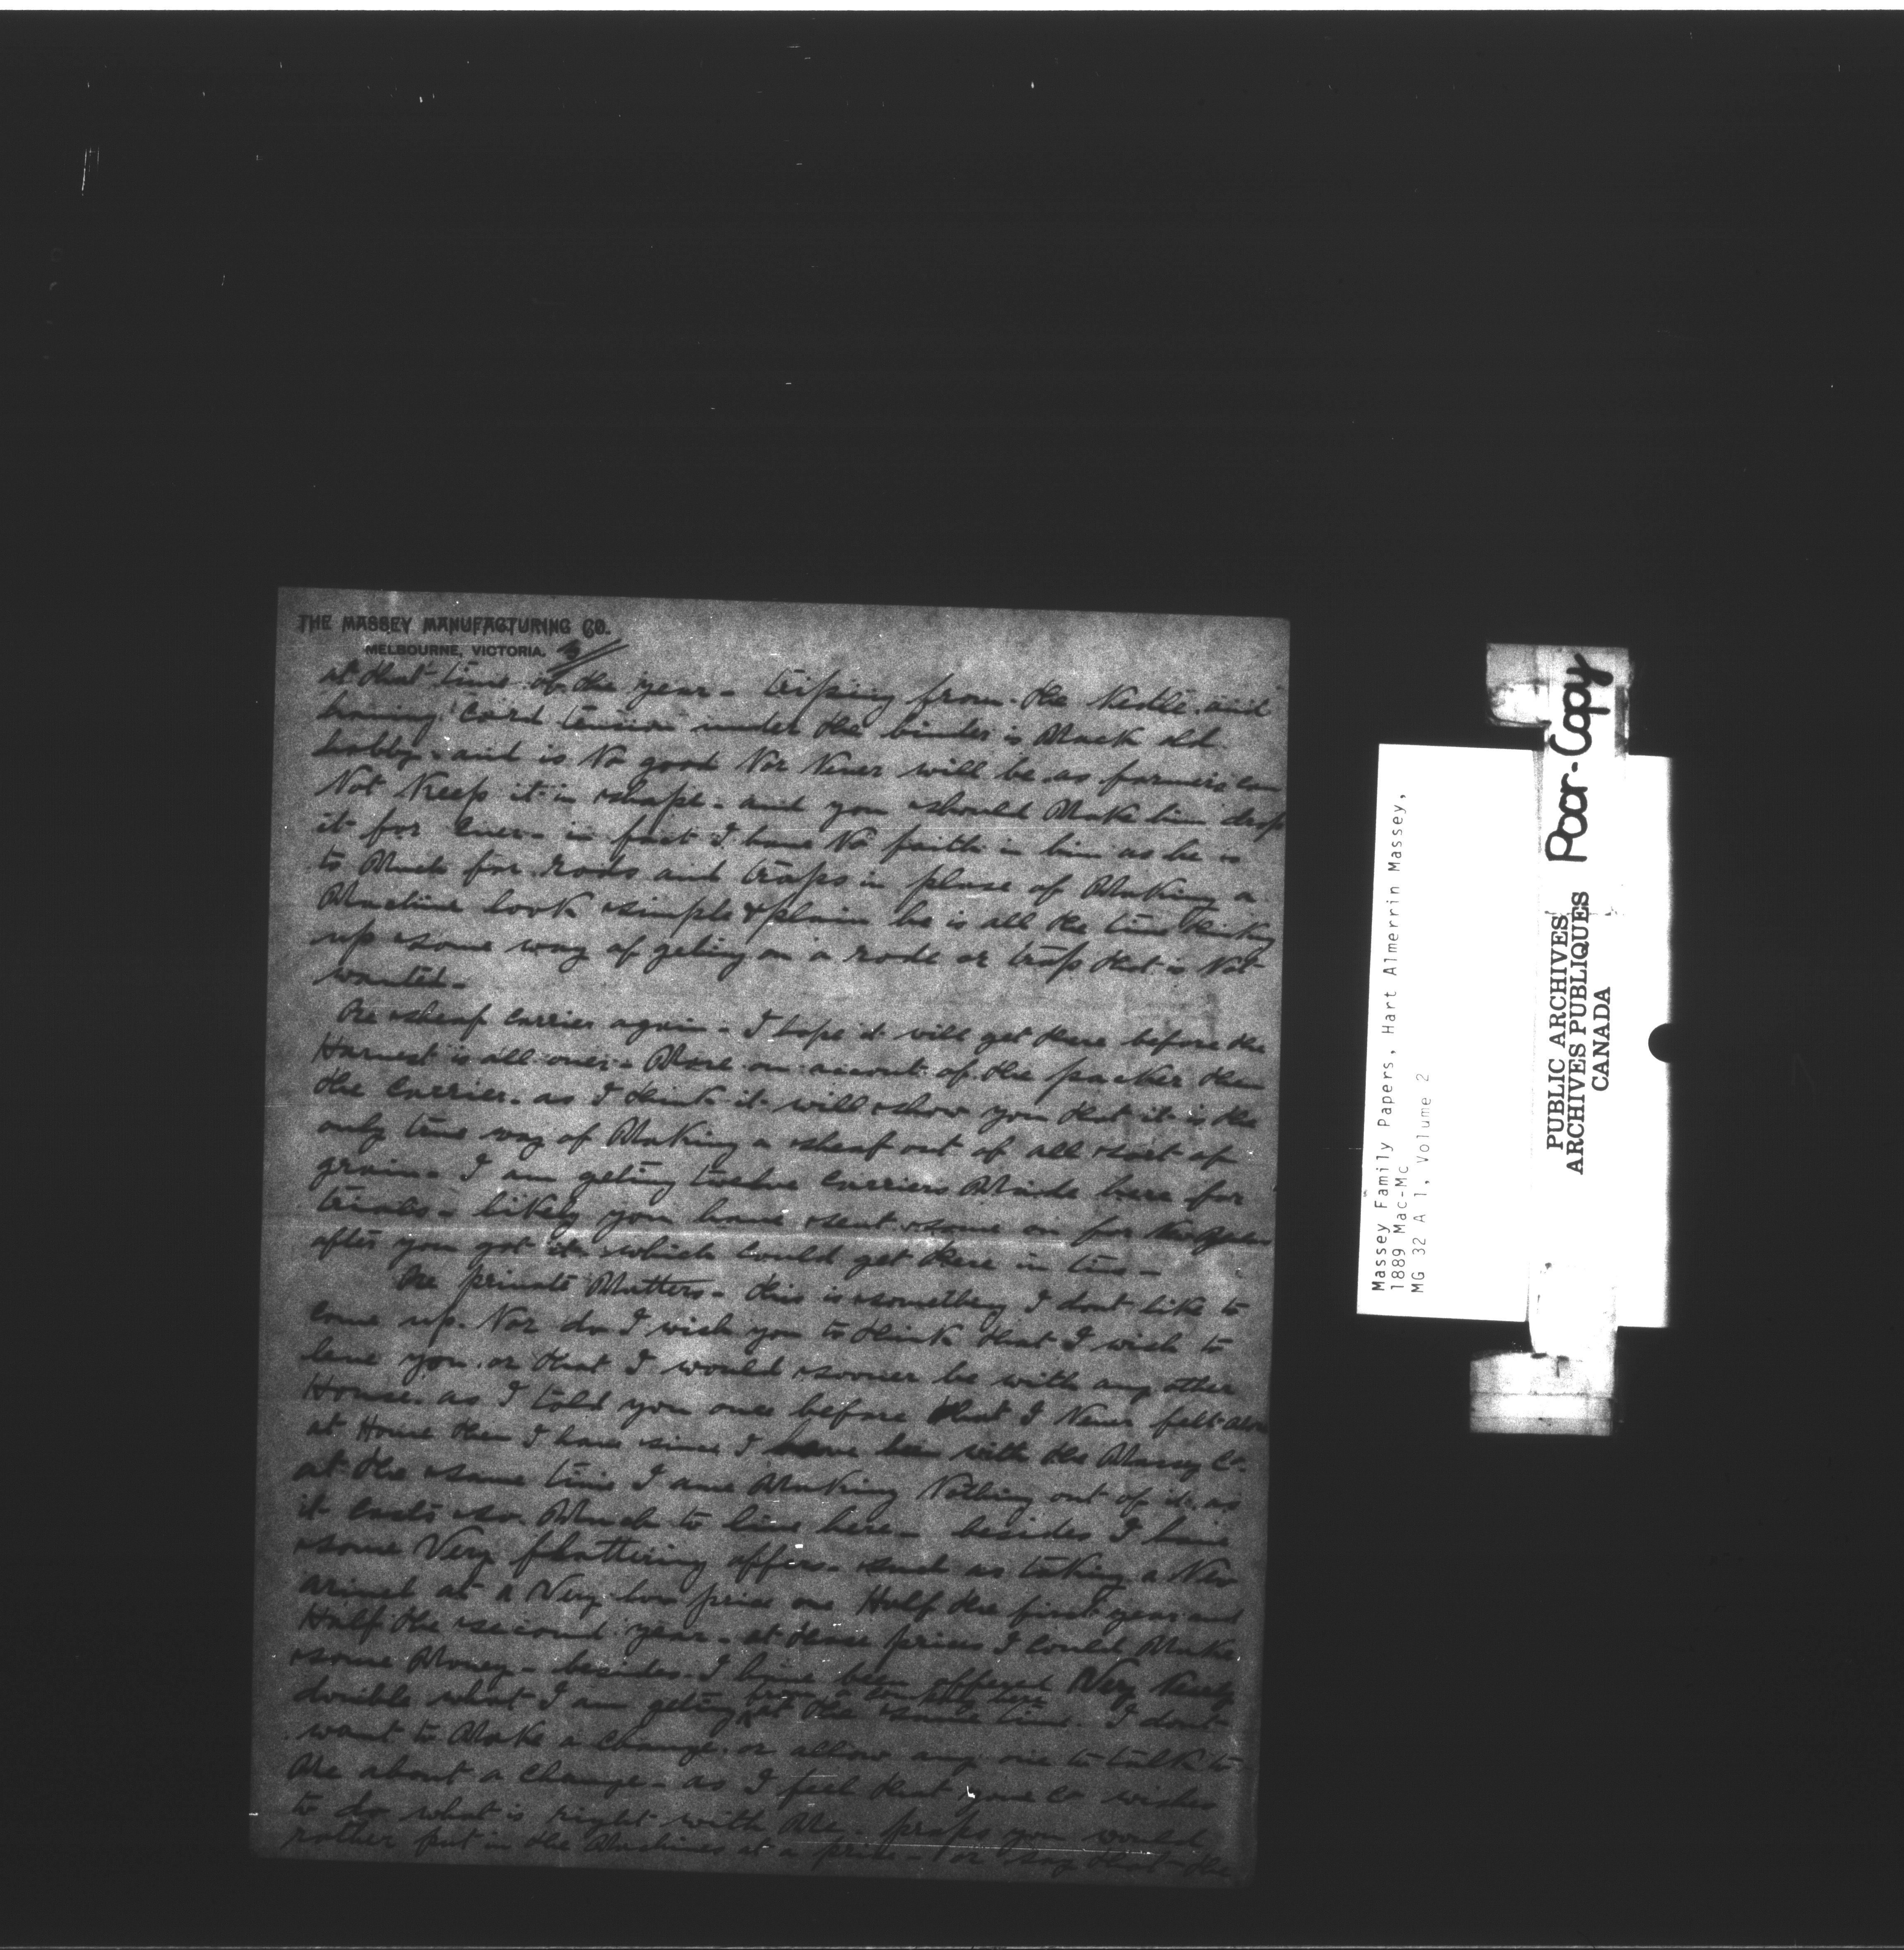 THE MASSEY MANUFACTURING CO.
MELBOURNE, VICTORIA.
at that time of the year - from the and
having cord tension under the binder is Mack old
hobby - and is No good Nor Never will be as farmers can
Not Keep it in shape - and you should Make him drop
it for ever - in fact I have No faith in him as he is
to Much for rods and traps in place of Making a
Machine look simple & plain he is all the time thinking
up some way of geting on a rode or trap that is Not
wanted -
Re sheaf carrier again - I hope it will get there before the
Harvest is all over - More on account of the packer then
the carrier. as I think it will show you that it is the
only true way of Making a sheaf out of all sort of
grain - I am geting twelve carriers Made here for
trials - likely you have sent some on for
after you got it which would get there in time -
Re private Matters - this is something I dont like to
come up. Nor do I wish you to think that I wish to
leve you. or that I would sooner be with any other
House. as I told you once before that I Never felt
at Home then I have since I have been with the Massey Co.
at the same time I am Making Nothing out of it. as
it costs so Much to live here - besides I have
some Very flattering offers - such as taking a New
at a Very low price one Half the first year and
Half the second year - at those prices I could Make
some Money - besides - I have been offered Very Nearly
double what I am geting from a company here at the same time. I dont
want to Make a change. or allow any one to talk to
Me about a change - as I feel that your Co wishes
to do what is right with Me - praps you would
rather put in the Machines at a price - or say that the
Massey Family Papers, Hart Almerrin Massey,
1889 Mac-Mc
MG 32 A 1, Volume 2
Poor-Copy
PUBLIC ARCHIVES
ARCHIVES PUBLIQUES
CANADA